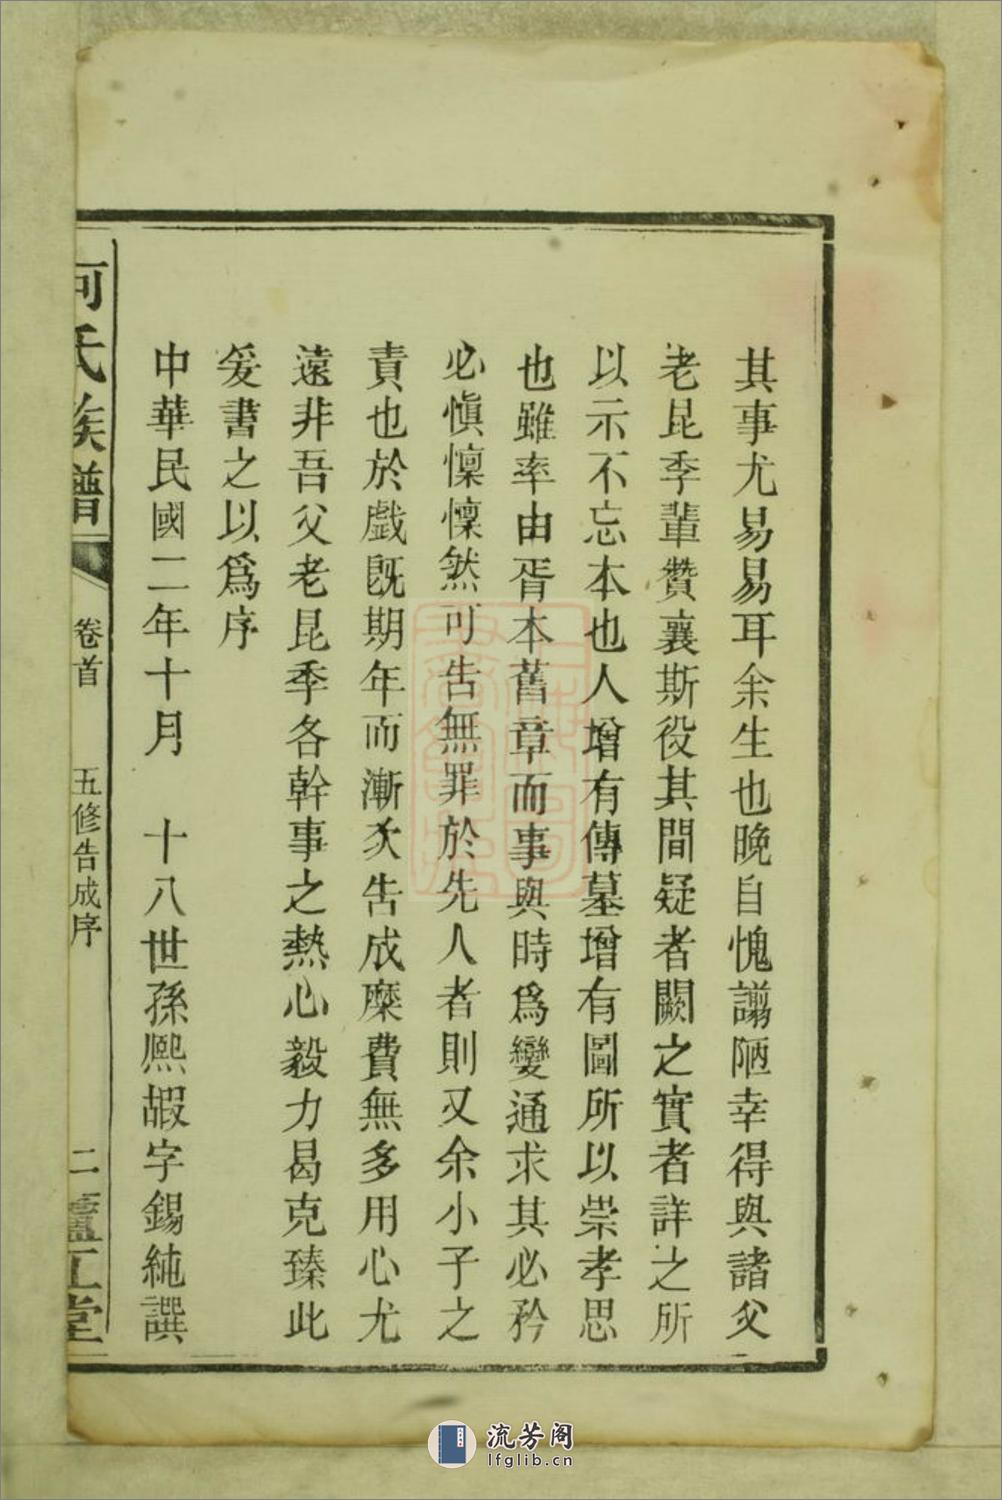 其事尤易易耳余生也晚自愧譾陋幸得與諸父
老昆季輩贊襄斯役其間疑者闕之實者詳之所
以示不忘本也人增有傳墓增有圖所以崇孝思
也雖率由胥本舊章而事與時爲變通求其必矜
必愼懍懍然可告無罪於先人者則又余小子之
責也於戲旣期年而漸次告成糜費無多用心尤
遠非吾父老昆季各幹事之熱心毅力曷克臻此
爰書之以爲序
中華民國二年十月 十八世孫熙嘏字錫純譔
何氏族譜 卷首 五修告成序 二 廬江堂
流芳阁
lfglib.cn